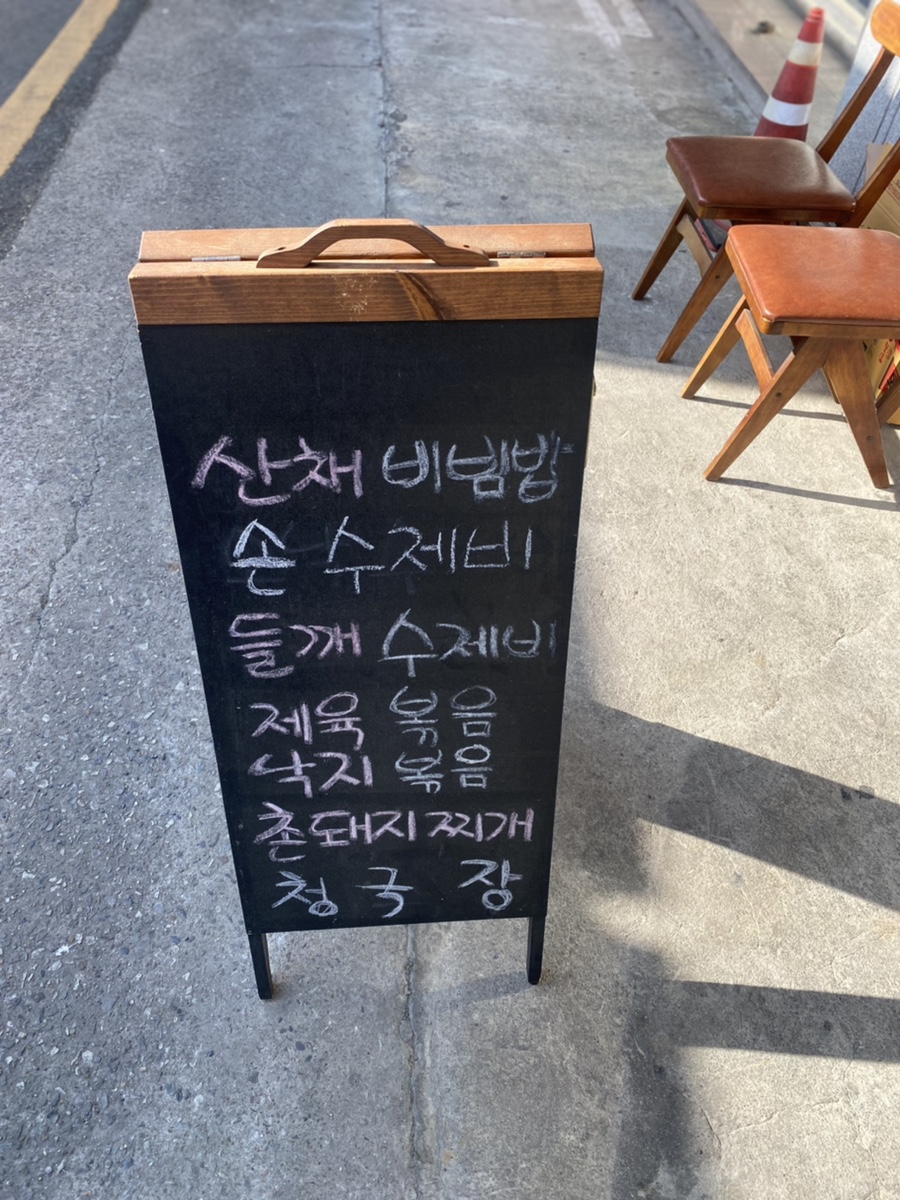 산채 비빔밥
손 수제비
들깨 수제비
제육 볶음
낙지 볶음
촌돼지 찌개
청국장